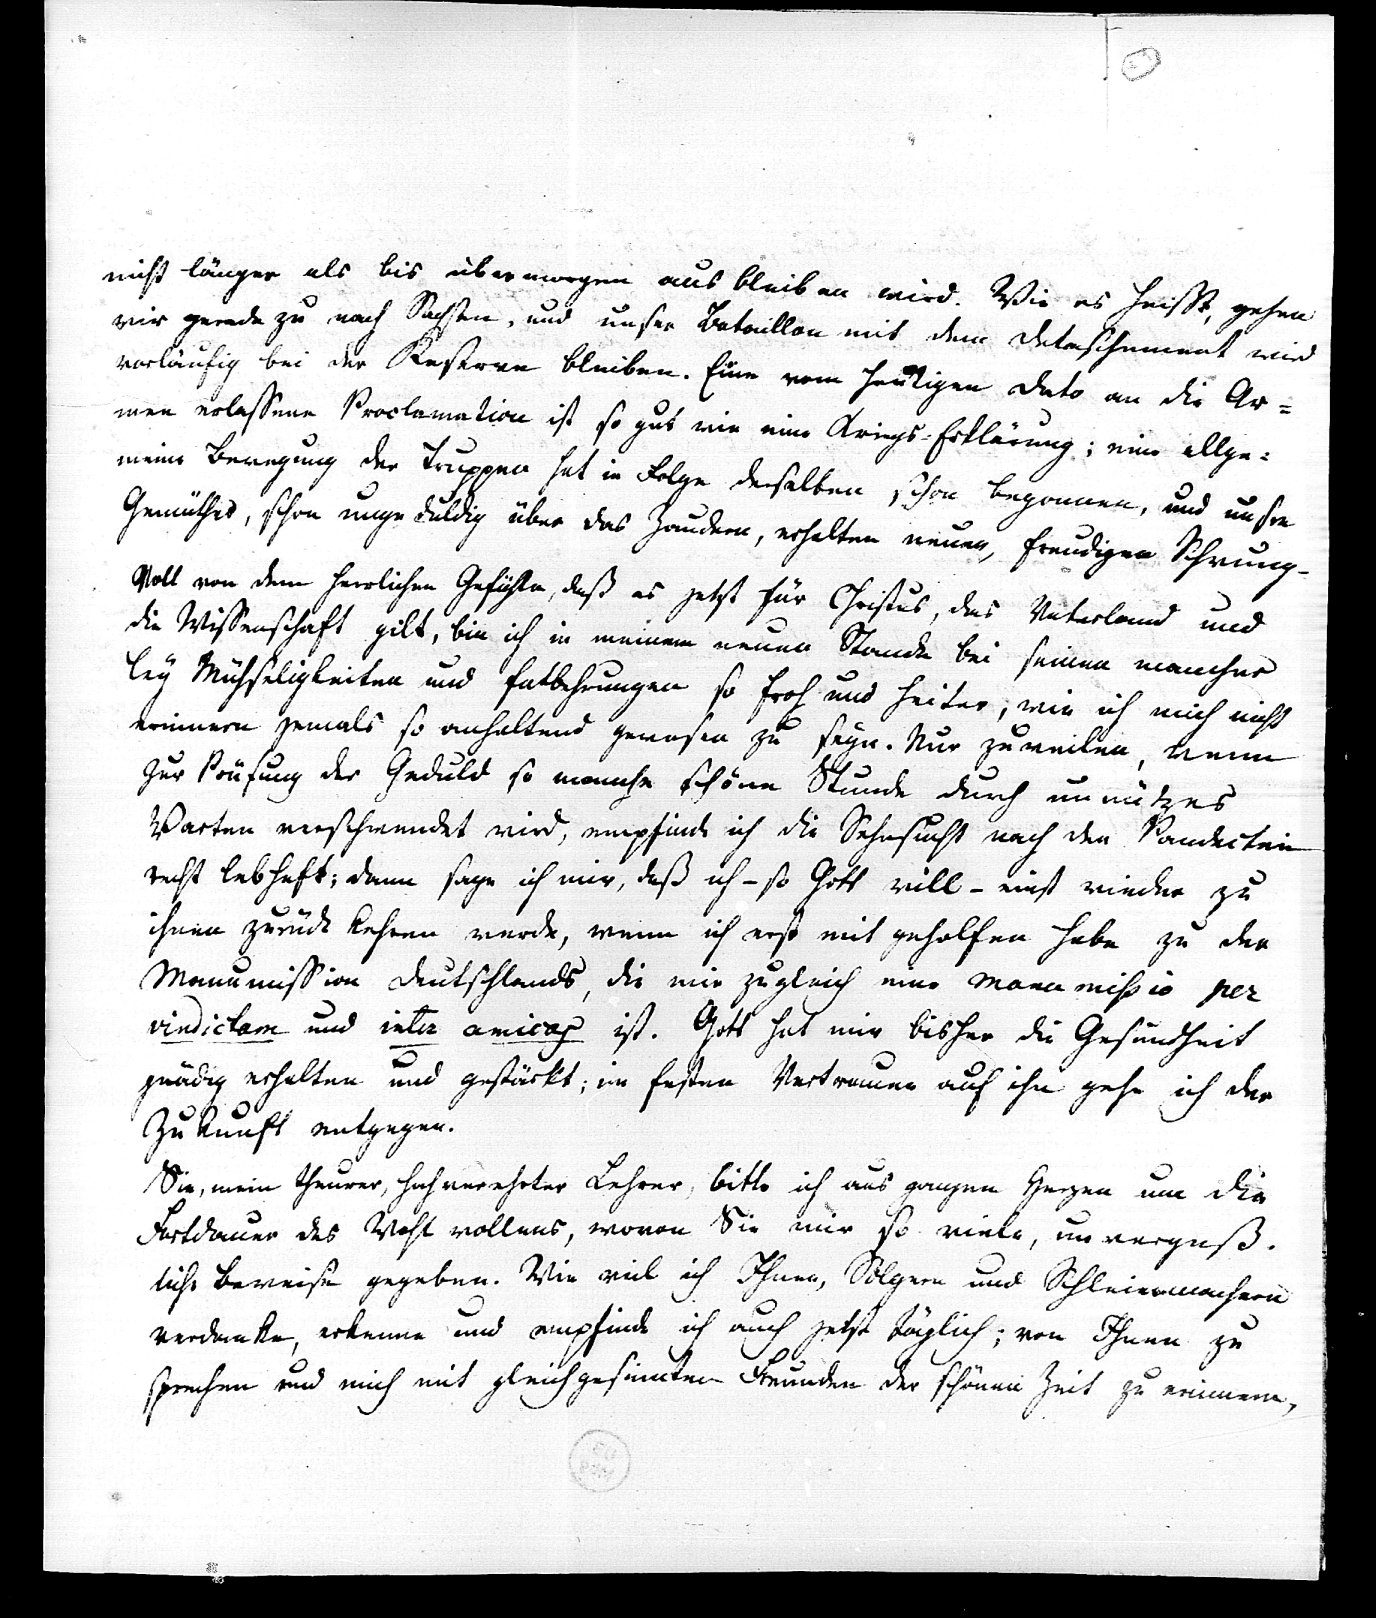 nicht länger als bis übermorgen ausbleiben wird. Wie es heißt, gehen
wir gerade zu nach Sachsen, und unser Bataillon mit dem Detaschement wird
vorläufig bei der Reserve bleiben. Eine vom heutigen Dato an die Ar=
mee erlassene Proclamation ist so gut wie eine Kriegs-Erklärung; eine allge=
meine Bewegung der Truppen hat in Folge derselben schon begonnen, und unsre
Gemüther, schon ungeduldig über das Zaudern, erhalten neuen, freudigen Schwung.
Voll von dem herrlichen Gefühle, daß es jetzt für Christus, das Vaterland und
die Wissenschaft gilt, bin ich in meinem neuen Stande bei seinen mancher
ley Mühseligkeiten und Entbehrungen so froh und heiter, wie ich mich nicht
erinnere jemals so anhaltend gewesen zu seyn. Nur zuweilen, wenn
zur Prüfung der Geduld so manche schöne Stunde durch unnützes
Warten verschwendet wird, empfinde ich die Sehnsucht nach den Pandecten
recht lebhaft; dann sage ich mir, daß ich - so Gott will - einst wieder zu
ihnen zurück kehren werde, wenn ich erst mit geholfen habe zu der
Manumission Deutschlands, die mir zugleich eine manumissio per
vindictam und inter amicos ist. Gott hat mir bisher die Gesundheit
gnädig erhalten und gestärkt; im festen Vertrauen auf ihn gehe ich der
Zukunft entgegen.
Sie, mein theurer, hochverehrter Lehrer, bitte ich aus ganzem Herzen um die
Fortdauer des Wohlwollens, wovon Sie mir so viele, unvergeß.
liche Beweise gegeben. Wie viel ich Ihnen, Solgern und Schleiermachern
verdanke, erkenne und empfinde ich auch jetzt täglich; von Ihnen zu
sprechen und mich mit gleichgesinnten Freunden der schönen Zeit zu erinnern,